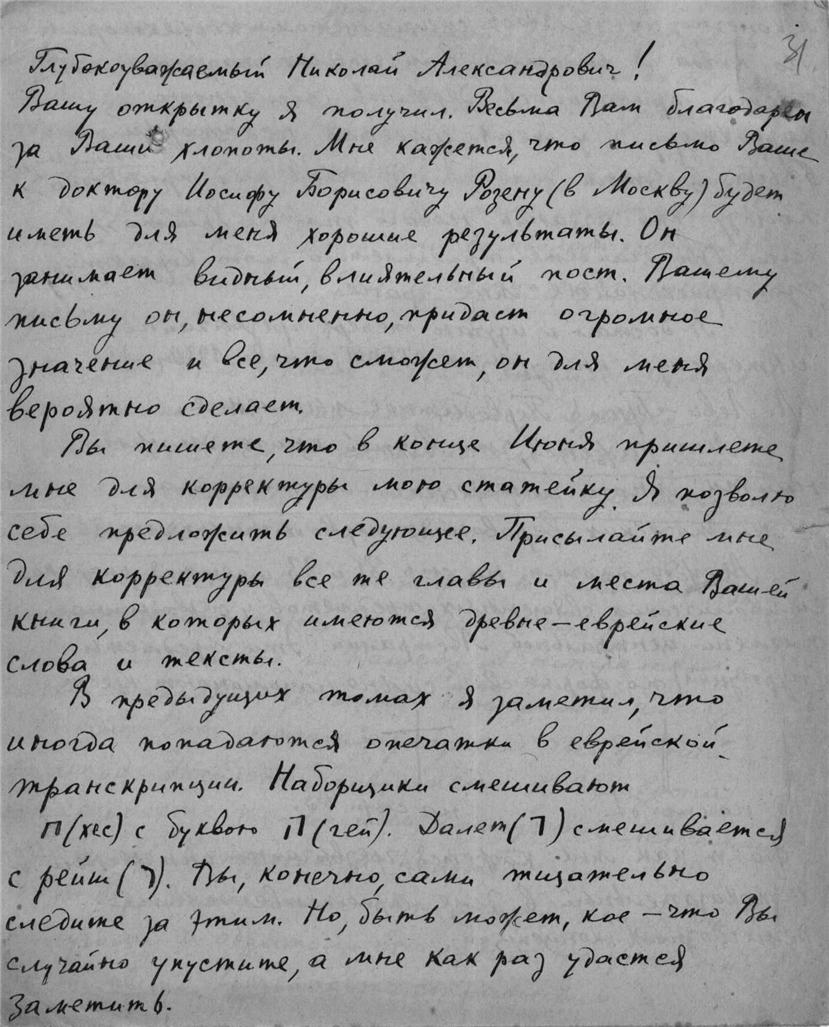 31
Глубокоуважаемый Николай Александрович!
Вашу открытку я получил. Весьма Вам благодарен
за Ваши хлопоты. Мне кажется, что письмо Ваше
к доктору Иосифу Борисовичу Розену (в Москву) будет
иметь для меня хорошие результаты. Он
занимает видный, влиятельный пост. Вашему
письму он, несомненно, придаст огромное
значение и все, что сможет, он для меня
вероятно сделает.
Вы пишете, что в конце Июня пришлете
мне для корректуры мою статейку. Я позволю
себе предложить следующее. Присылайте мне
для корректуры все те главы и места Вашей
книги, в которых имеются древне-еврейские
слова и тексты.
В предыдущих томах я заметил, что
иногда попадаются опечатки в еврейской
транскрипции. Наборщики смешивают
ח (хес) с буквою ה (гей). Далет (ד) смешивается
с рейш (ר). Вы, конечно, сами тщательно
следите за этим. Но, быть может, кое-что Вы
случайно упустите, а мне как раз удастся
заметить.